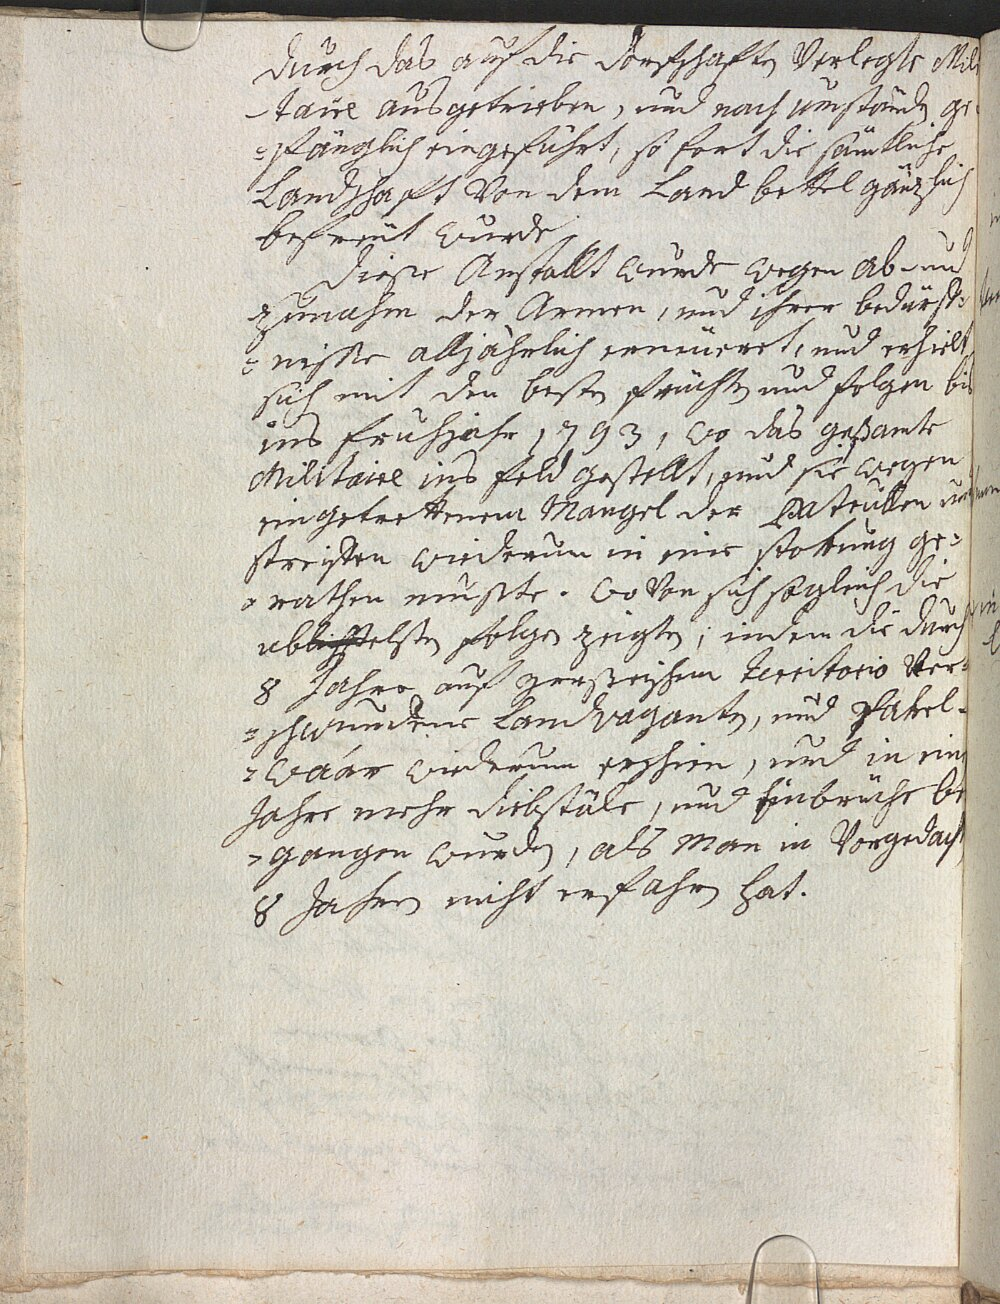 durch das auf die dorfschaften Verlegte Mili
-taire ausgetrieben, und nach umständen ge-
=fänglich eingeführt, so fort die sämtliche
Landschaft Von dem Land bettel gänzlich
befreüt wurde,
diese Anstallt wurde wegen Ab- und
zunahm der Armen, und ihrer bedürf=
=nisse alljährlich erneüeret, und erhielt
sich mit den besten früchten und folgen bis
ins frühjahr 1793, wo das gesamte
Militaire ins feld gestellt, und sie wegen
eingetrettenem Mangel der Patrullen und
streiffen wiederum in eine stokung ge=
=rathen muste. wo Von sich sogleich die
übelsten folgen zeigten; indem die durch
8 Jahre auf territorio Ver=
=schwundene Landvaganten, und Pakel-
=waar wiederum erschien, und in einem
Jahre mehr diebstäle, und Einbrüche be
=gangen wurden, als Man in Vorgedacht
8 Jahren nicht erfahren hat.